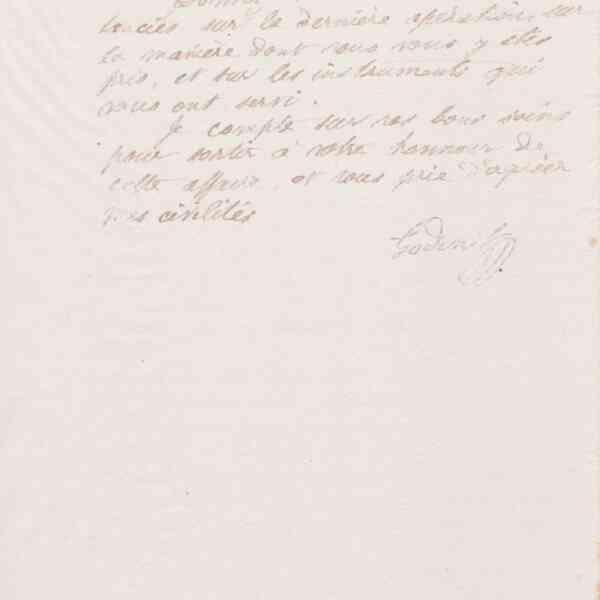 Donner
tances sur la dernière opération, sur
la manière dont vous vous y êtes
pris, et sur les instruments qui
vous ont servi.
Je compte sur vos bons soins
pour sortir à votre honneur de
cette affaire, et vous prie d'agréer
mes civilités
Godin